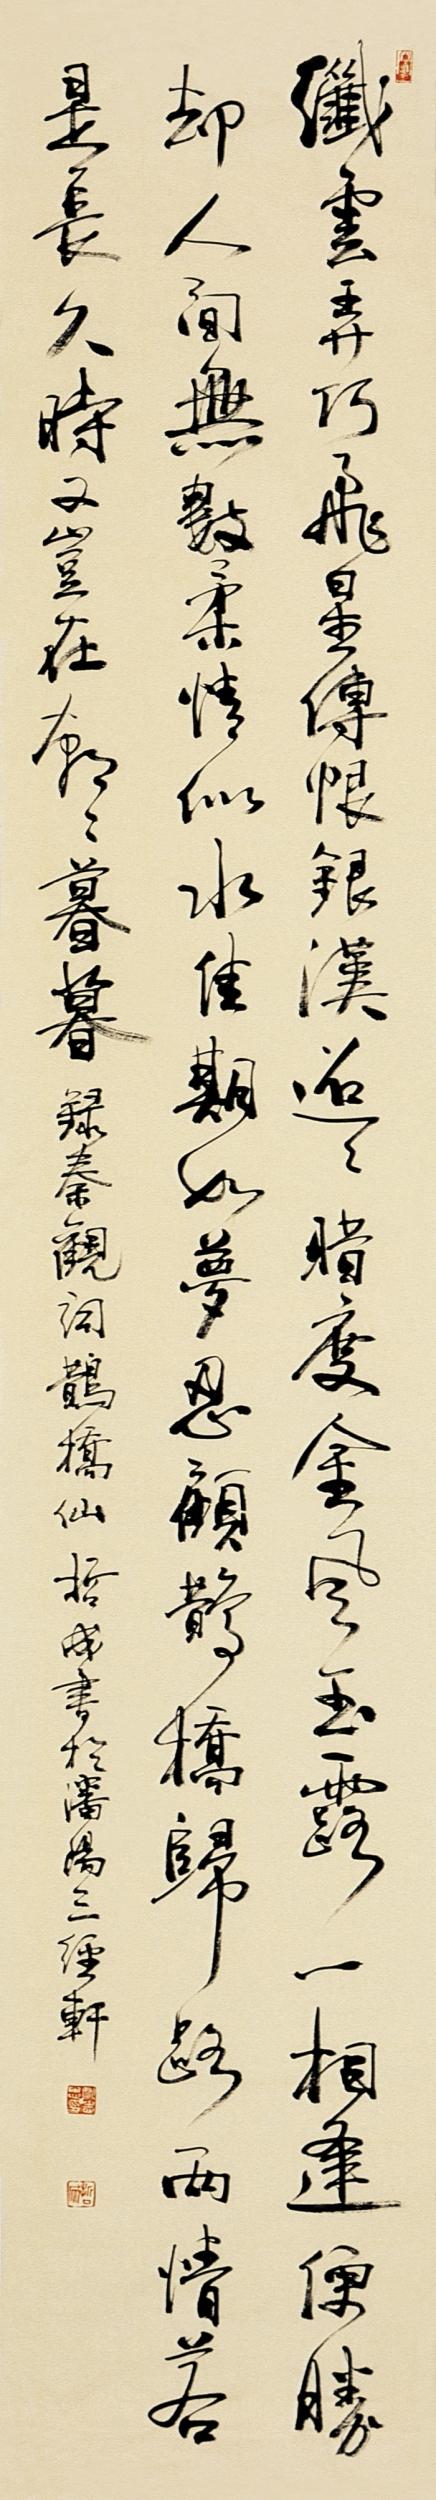 纖雲弄巧飛星傳恨銀漢迢〻暗度金風玉露一相逢便勝
却人間無數柔情似水佳期如夢忍顧鵲橋歸路兩情若
是長久時又豈在朝〻暮暮
錄秦觀詞鵲橋仙 哲成書於瀋陽三經軒